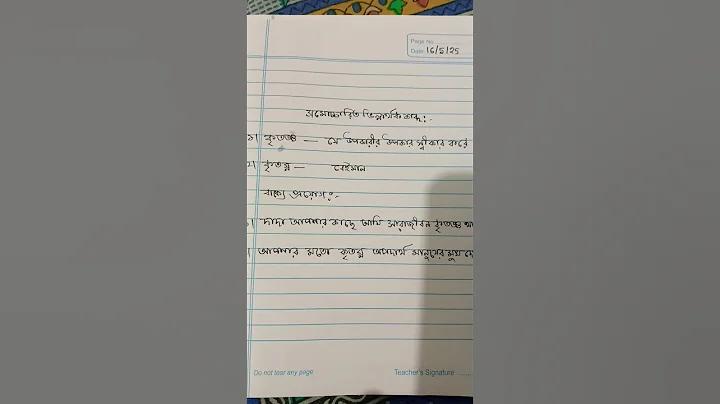 Page No
Date 16/5/25
সমোচ্চারিত ভিন্নার্থক শব্দ :-
১। কৃতজ্ঞ — যে উপকারীর উপকার স্বীকার করে
২। কৃতঘ্ন — বেইমান
বাক্যে প্রয়োগ :-
১। দাদা আপনার কাছে আমি সারাজীবন কৃতজ্ঞ
। আপনার মতো কৃতঘ্ন অপদার্থ মানুষের মুখ
Do not tear any page
Teacher's Signature ........